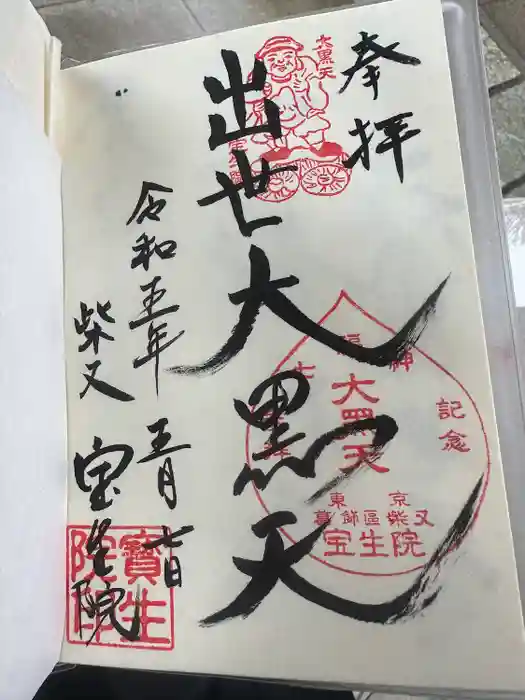 奉拝
大黒天
宝生院
出世大黒天
記念
福神
七
大黒天
東京
葛飾區柴又
宝生院
令和五年 五月七日
柴又 宝生院
寶生
院印